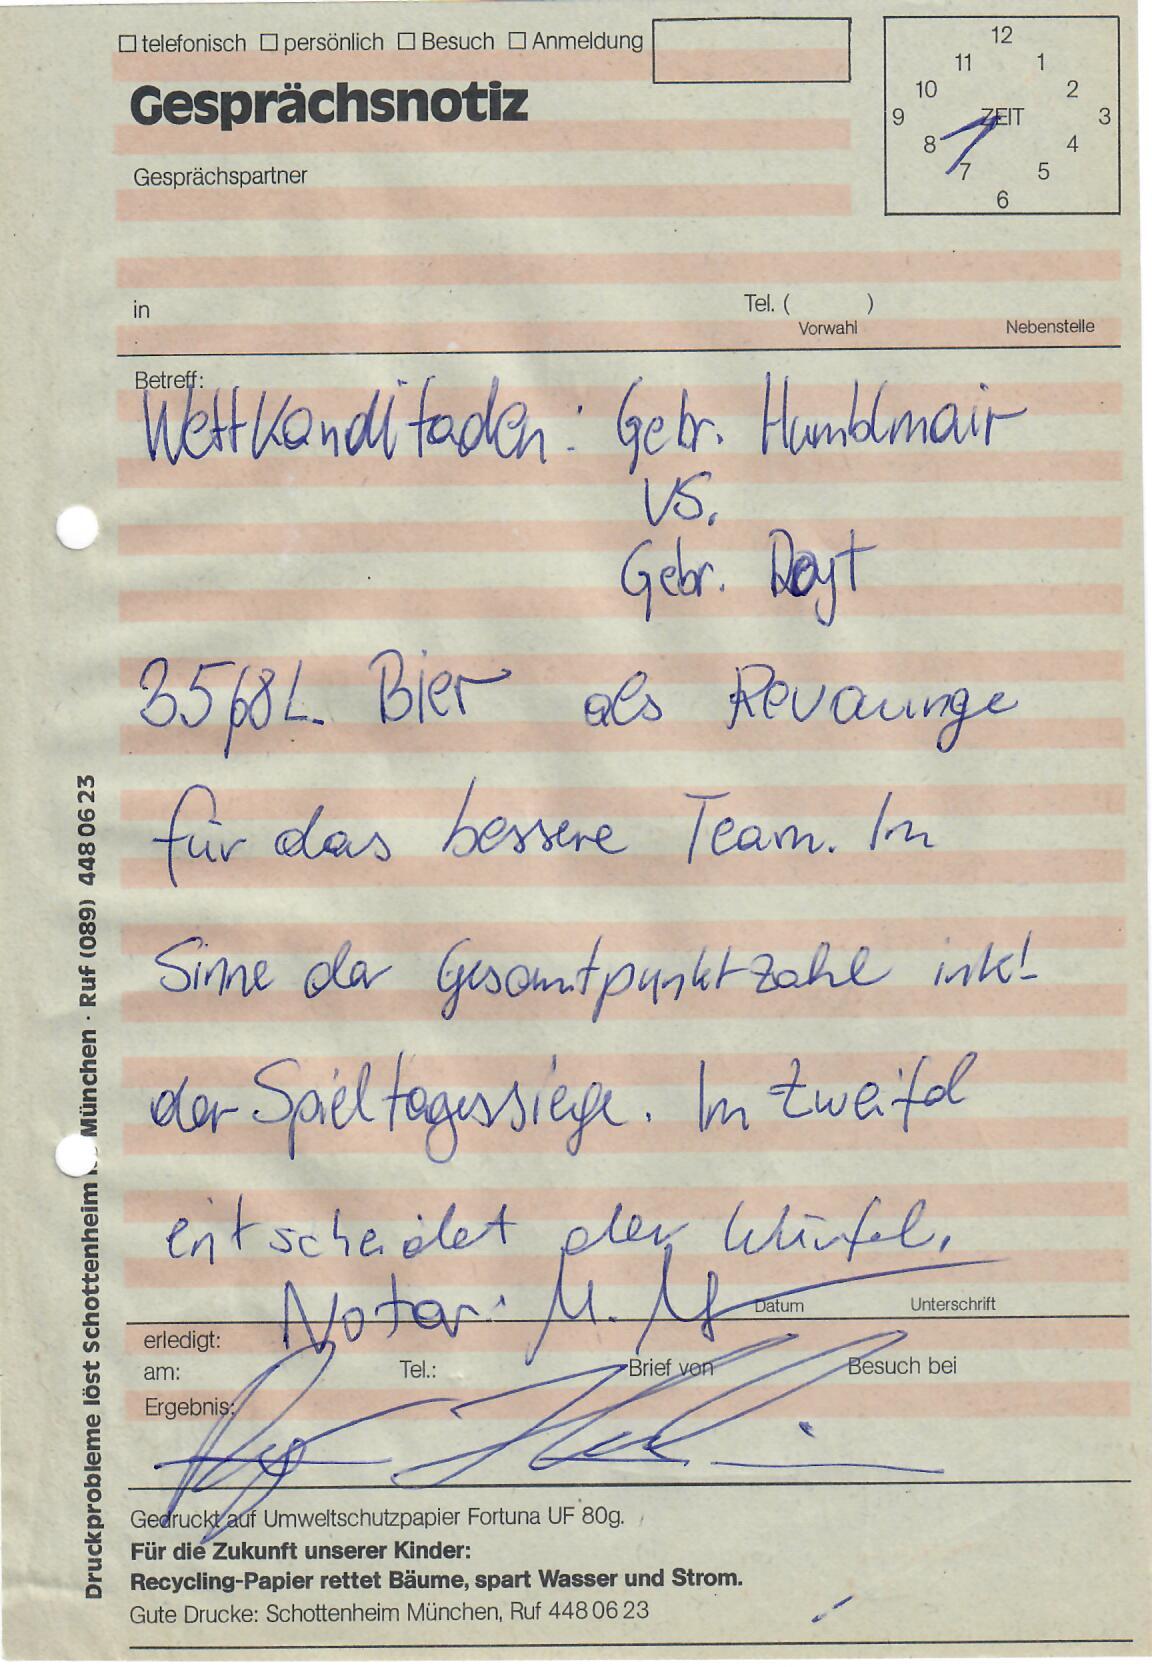 ☐ telefonisch ☐ persönlich ☐ Besuch ☐ Anmeldung
Gesprächsnotiz
Gesprächspartner
12
11 1
10 2
9 ZEIT 3
8 4
7 5
6
in Tel. ( )
Vorwahl Nebenstelle
Betreff:
Wettkanditaden: Gebr. Humblmair
VS.
Gebr. Doyt
3568L Bier als Revaunge
für das bessere Team. Im
Sinne der Gesamtpunktzahl inkl
der Spieltagessiege. Im Zweifel
entscheidet der Würfel.
Notar: M.
Datum Unterschrift
erledigt:
am: Tel.: Brief von Besuch bei
Ergebnis:
Gedruckt auf Umweltschutzpapier Fortuna UF 80g.
Für die Zukunft unserer Kinder:
Recycling-Papier rettet Bäume, spart Wasser und Strom.
Gute Drucke: Schottenheim München, Ruf 448 06 23
Druckprobleme löst Schottenheim München · Ruf (089) 448 06 23